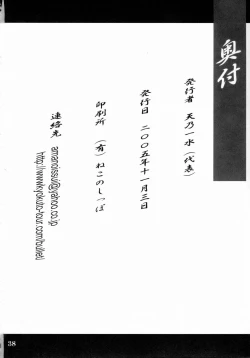 奥付
発行者 天乃一水(代表)
発行日 二〇〇五年十一月三日
印刷所 (有)ねこのしっぽ
連絡先
amanoissui@yahoo.co.jp
http://www.yokoto-tour.com/bullet/
38